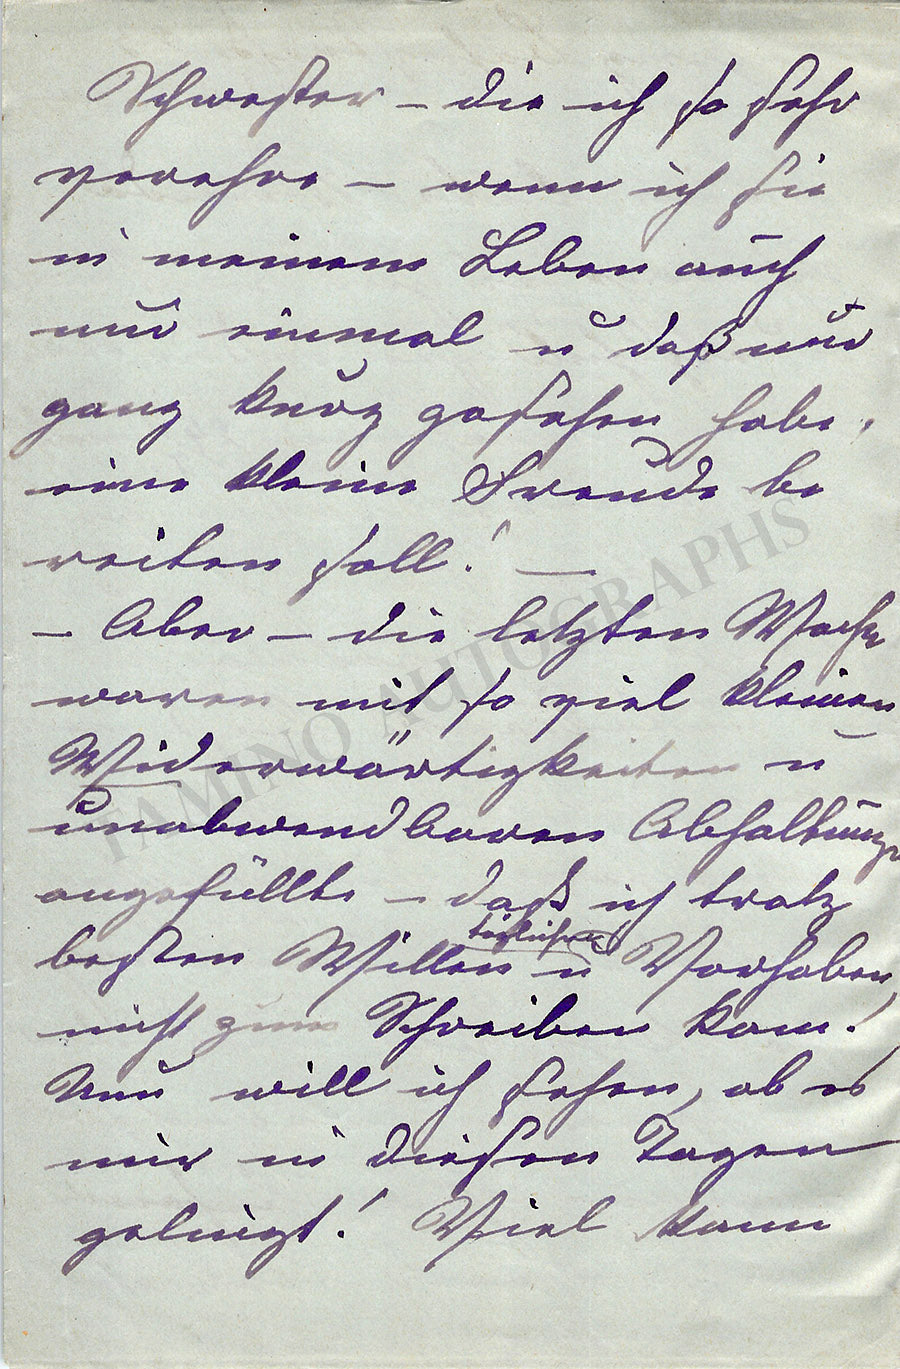 Schwester – die ich so sehr
verehre – wenn ich sie
in meinem Leben auch
nur einmal u daß nur
ganz kurz gesehen habe,
eine kleine Freude be
reiten soll! –
– Aber – die letzten Wochen
waren mit so viel kleinen
Widerwärtigkeiten u
unabwendbaren Abhaltungen
angefüllt – daß ich trotz
täglichen
besten Willen u Vorhaben
nicht zum Schreiben kam!
Nun will ich sehen, ob es
mir in diesen Tagen
gelingt! Viel kann
TAMINO AUTOGRAPHS